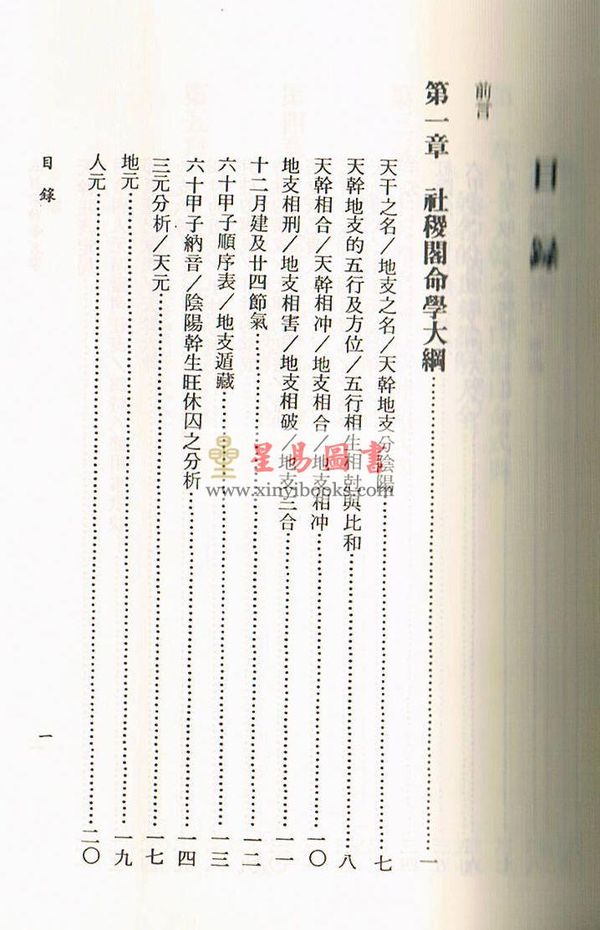 目錄
前言
第一章 社稷閣命學大綱……一
天干之名/地支之名/天幹地支分陰陽……七
天幹地支的五行及方位/五行相生相尅與比和……八
天幹相合/天幹相冲/地支相合/地支相冲……一〇
地支相刑/地支相害/地支相破/地支三合……一一
十二月建及廿四節氣……一二
六十甲子順序表/地支遁藏……一三
六十甲子納音/陰陽幹生旺休囚之分析……一四
三元分析/天元……一七
地元……一九
人元……二〇
目錄
一
星易圖書
www.xinyibooks.com